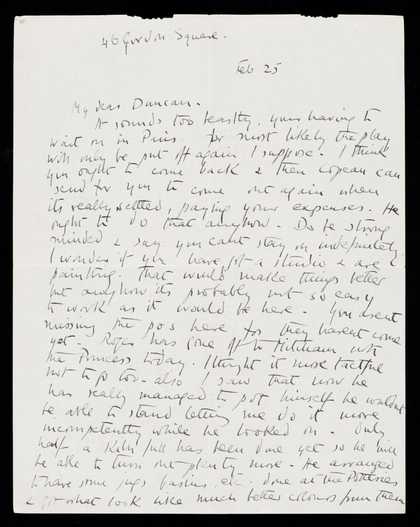 46 Gordon Square.
Feb 25
My dear Duncan.
It sounds too beastly, your having to
wait on in Paris for most likely the play
will only be put off again I suppose. I think
you ought to come back & then Copeau can
send for you to come out again when
its really settled, paying your expenses. He
ought to do that anyhow. Do be strong
minded & say you cant stay on indefinitely.
I wonder if you have got a studio & are
painting. That would make things better
but anyhow its probably not so easy
to work as it would be here. You arent
missing the pots here for they havent come
yet. Roger has gone off to Mitcham with
the Princess today. I thought it more tactful
not to go too - also I saw that now he
has really managed to pot himself he wouldnt
be able to stand letting me do it more
incompetently while he looked on. Only
half a kiln full has been done yet so he will
be able to turn out plenty more. He arranged
to have some jugs basins etc. done at the Potteries
& got what look like much better colours from them